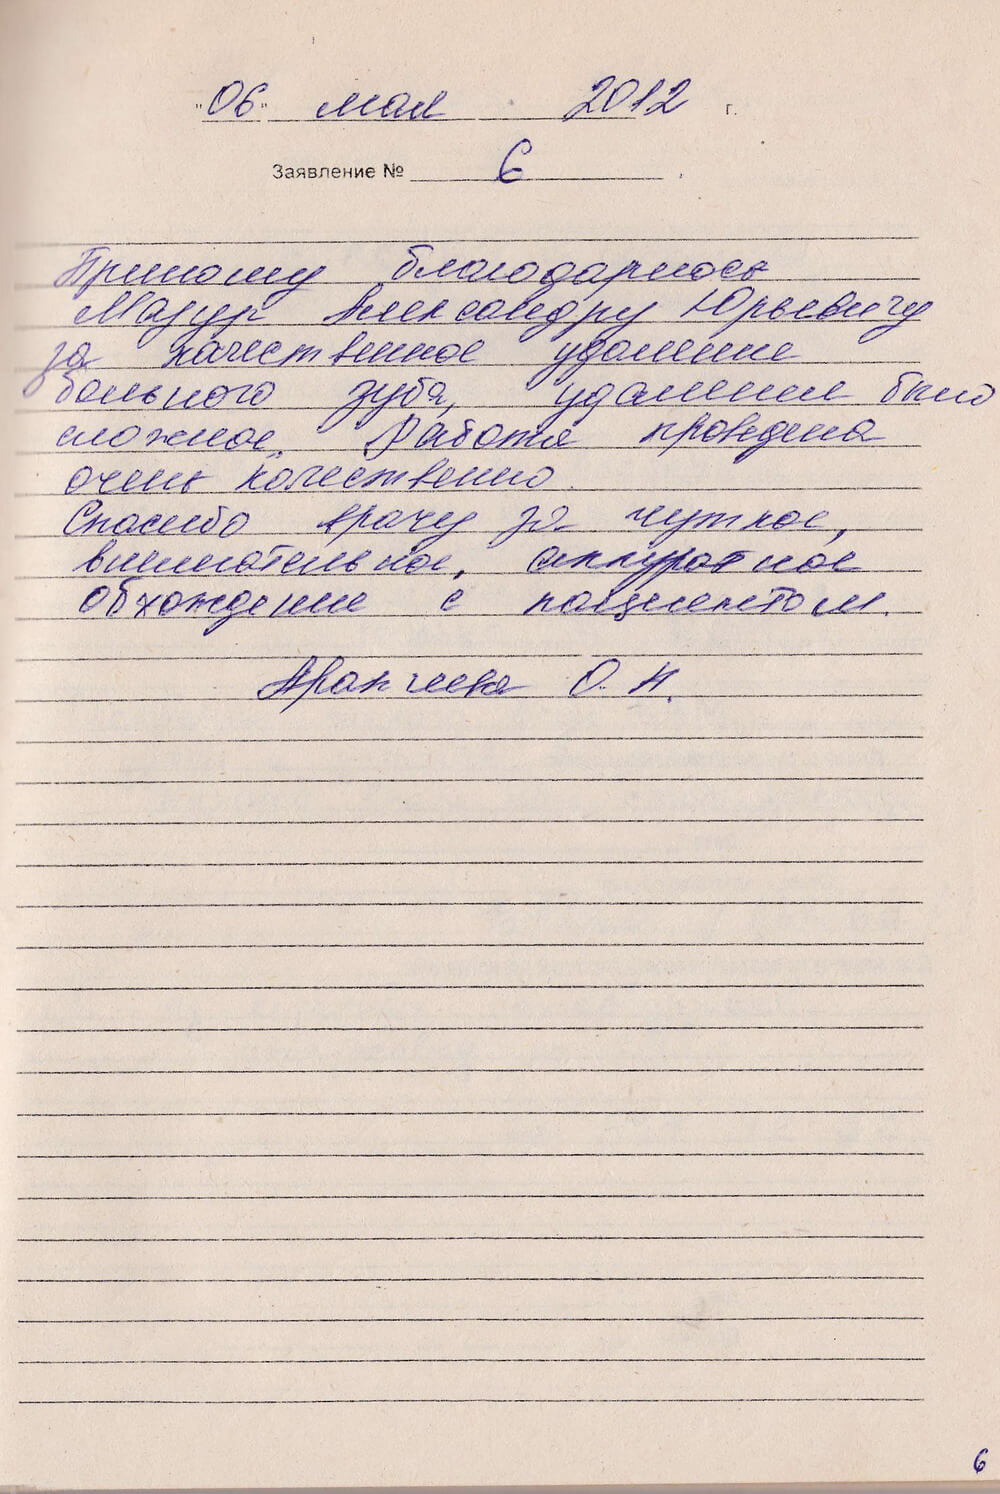 "06" мая 2012 г.
Заявление № 6
Приношу благодарность
Мазур Александру Юрьевичу
за качественное удаление
больного зуба, удаление было
сложное. Работа проведена
очень качественно.
Спасибо врачу за чуткое,
внимательное, аккуратное
обхождение с пациентом.
О. Н.
6